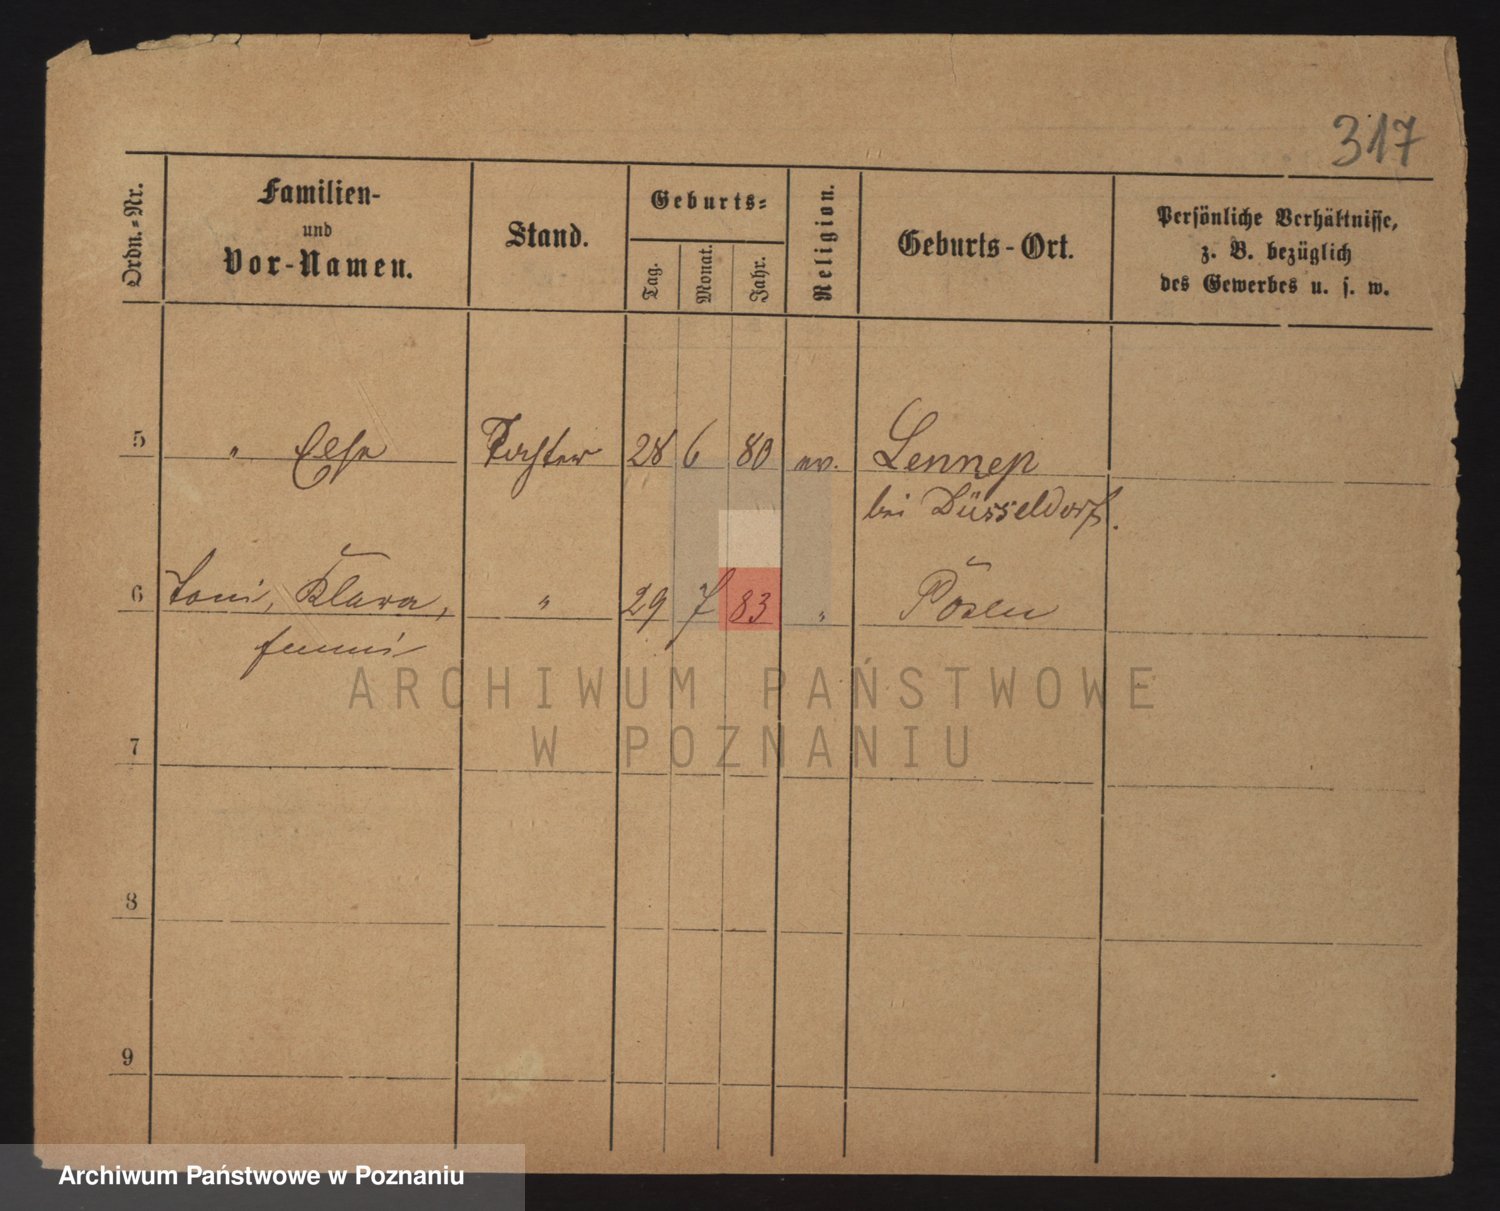 317
Ordn.-Nr.
Familien-
und
Vor-Namen.
Stand.
Geburts-
Tag.
Monat.
Jahr.
Religion.
Geburts-Ort.
Persönliche Verhältnisse,
z. B. bezüglich
des Gewerbes u. s. w.
5 " Else Tochter 28 6 80 ev. Lennep
bei Düsseldorf.
6 Toni, Klara, " 29 7 83 " Posen
7
8
9
ARCHIWUM PAŃSTWOWE
W POZNANIU
Archiwum Państwowe w Poznaniu